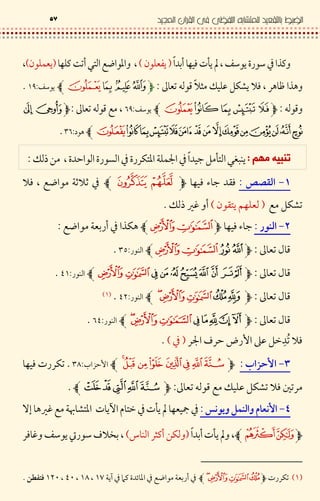 الضبط بالتقعيد للمتشابه اللفظي في القرآن المجيد
٥٧
وكذا في سورة يوسف ، لم يأت فيها أبداً ( يفعلون ) ، والمواضع التي أتت كلها (يعملون)،
وهذا ظاهر ، فلا يشكل عليك مثلاً قوله تعالى : ﴿ وَٱللَّهُ عَلِيمٌۢ بِمَا يَعْمَلُونَ ﴾ يوسف:١٩ .
وقوله : ﴿ فَلَا تَبْتَئِسْ بِمَا كَانُوا۟ يَعْمَلُونَ ﴾ يوسف:٦٩ ، مع قوله تعالى : ﴿ وَأُوحِىَ إِلَىٰ
نُوحٍ أَنَّهُۥ لَن يُؤْمِنَ مِن قَوْمِكَ إِلَّا مَن قَدْ ءَامَنَ فَلَا تَبْتَئِسْ بِمَا كَانُوا۟ يَفْعَلُونَ ﴾ هود:٣١ .
تنبيه مهم : ينبغي التأمل جيداً في الجملة المتكررة في السورة الواحدة ، من ذلك :
١- القصص : فقد جاء فيها ﴿ لَعَلَّهُمْ يَتَذَكَّرُونَ ﴾ في ثلاثة مواضع ، فلا
تشكل مع ( لعلهم يتقون ) أو غير ذلك .
٢- النور : جاء فيها ﴿ ٱلسَّمَٰوَٰتِ وَٱلْأَرْضِ ﴾ هكذا في أربعة مواضع :
قال تعالى : ﴿ ٱللَّهُ نُورُ ٱلسَّمَٰوَٰتِ وَٱلْأَرْضِ ﴾ النور:٣٥ .
قال تعالى : ﴿ أَلَمْ تَرَ أَنَّ ٱللَّهَ يُسَبِّحُ لَهُۥ مَن فِى ٱلسَّمَٰوَٰتِ وَٱلْأَرْضِ ﴾ النور:٤١ .
قال تعالى : ﴿ وَلِلَّهِ مُلْكُ ٱلسَّمَٰوَٰتِ وَٱلْأَرْضِ ﴾ النور:٤٢ . (١)
قال تعالى : ﴿ أَلَآ إِنَّ لِلَّهِ مَا فِى ٱلسَّمَٰوَٰتِ وَٱلْأَرْضِ ﴾ النور:٦٤ .
فلا تُدخِل على الأرض حرف الجر ( في ) .
٣- الأحزاب : ﴿ سُنَّةَ ٱللَّهِ فِى ٱلَّذِينَ خَلَوْا۟ مِن قَبْلُ ﴾ الأحزاب:٣٨ . تكررت فيها
مرتين فلا تشكل عليك مع قوله تعالى: ﴿ سُنَّتَ ٱللَّهِ ٱلَّتِى قَدْ خَلَتْ ﴾ .
٤- الأنعام والنمل ويونس : في جميعها لم يأت في ختام الآيات المتشابهة مع غيرها إلا
﴿ وَلَٰكِنَّ أَكْثَرَهُمْ ﴾ ، ولم يأت أبداً (ولكن أكثر الناس) ، بخلاف سورتي يوسف وغافر
(١) تكررت ﴿ مُلْكُ ٱلسَّمَٰوَٰتِ وَٱلْأَرْضِ ﴾ في أربعة مواضع في المائدة كما في آية ١٧ ، ١٨ ، ٤٠ ، ١٢٠ فتفطن .